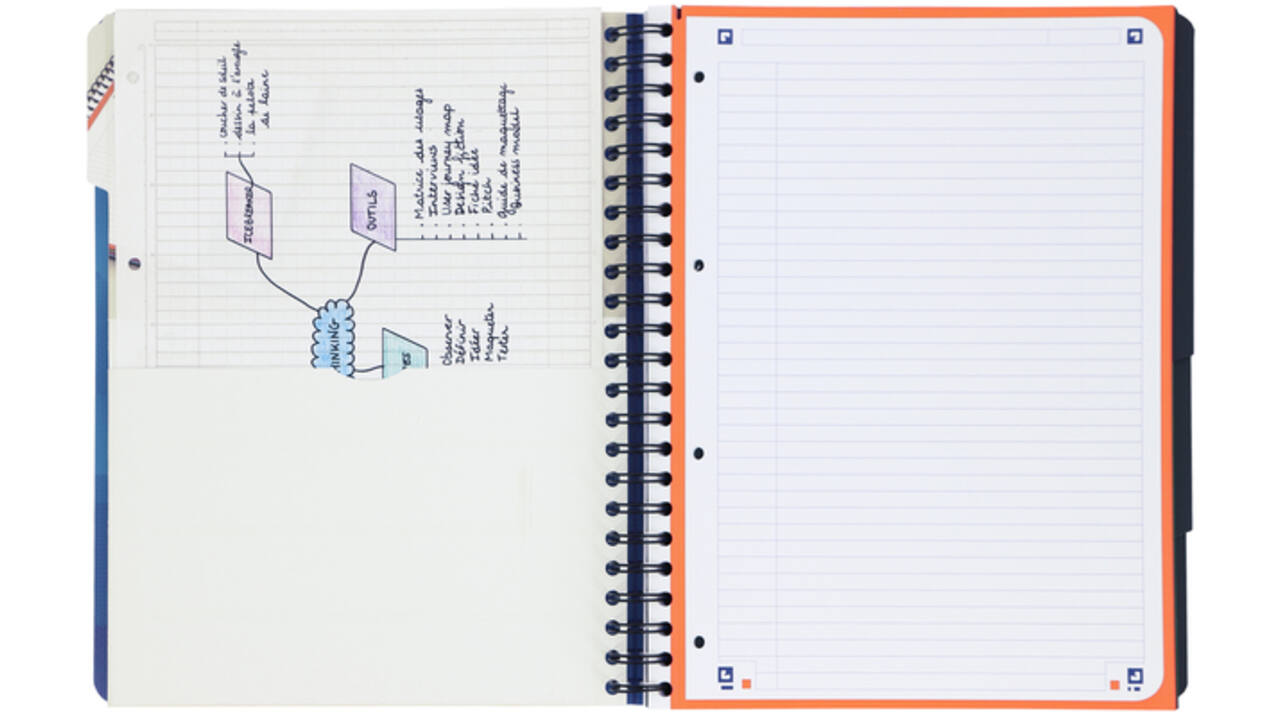 ICEBREAKER
. coucher de soleil
. dessin à l'aveugle
. la pelote
de laine
OUTILS
. Matrice des usages
. Interviews
. User journey map
. Design fiction
. Fiche idée
. Pitch
. Guide de maquettage
. Business model
INKING
ES
Observer
Définir
Idéer
Maquetter
Tester